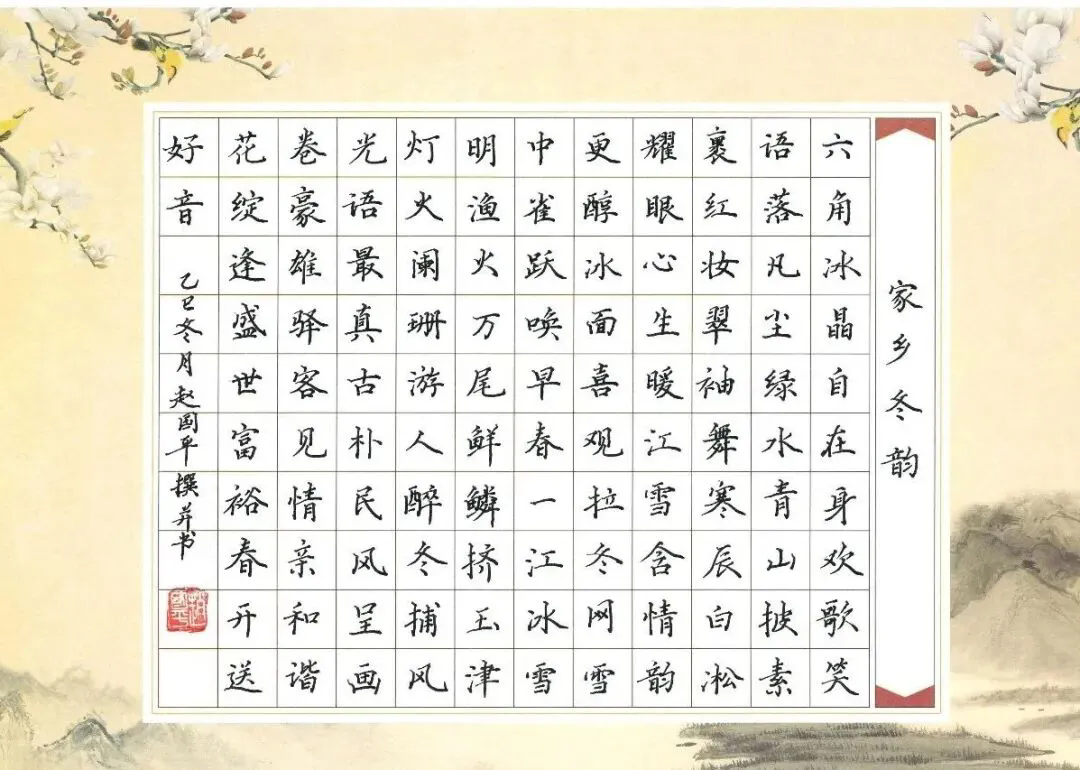 家乡冬韵
六角冰晶自在身欢歌笑
语落凡尘绿水青山披素
裹红妆翠袖舞寒辰白淞
耀眼心生暖江雪含情韵
更醇冰面喜观拉冬网雪
中雀跃唤早春一江冰雪
明渔火万尾鲜鳞挤玉津
灯火阑珊游人醉冬捕风
光语最真古朴民风呈画
卷豪雄驿客见情亲和谐
花绽逢盛世富裕春开送
好音
乙巳冬月赵国平撰并书